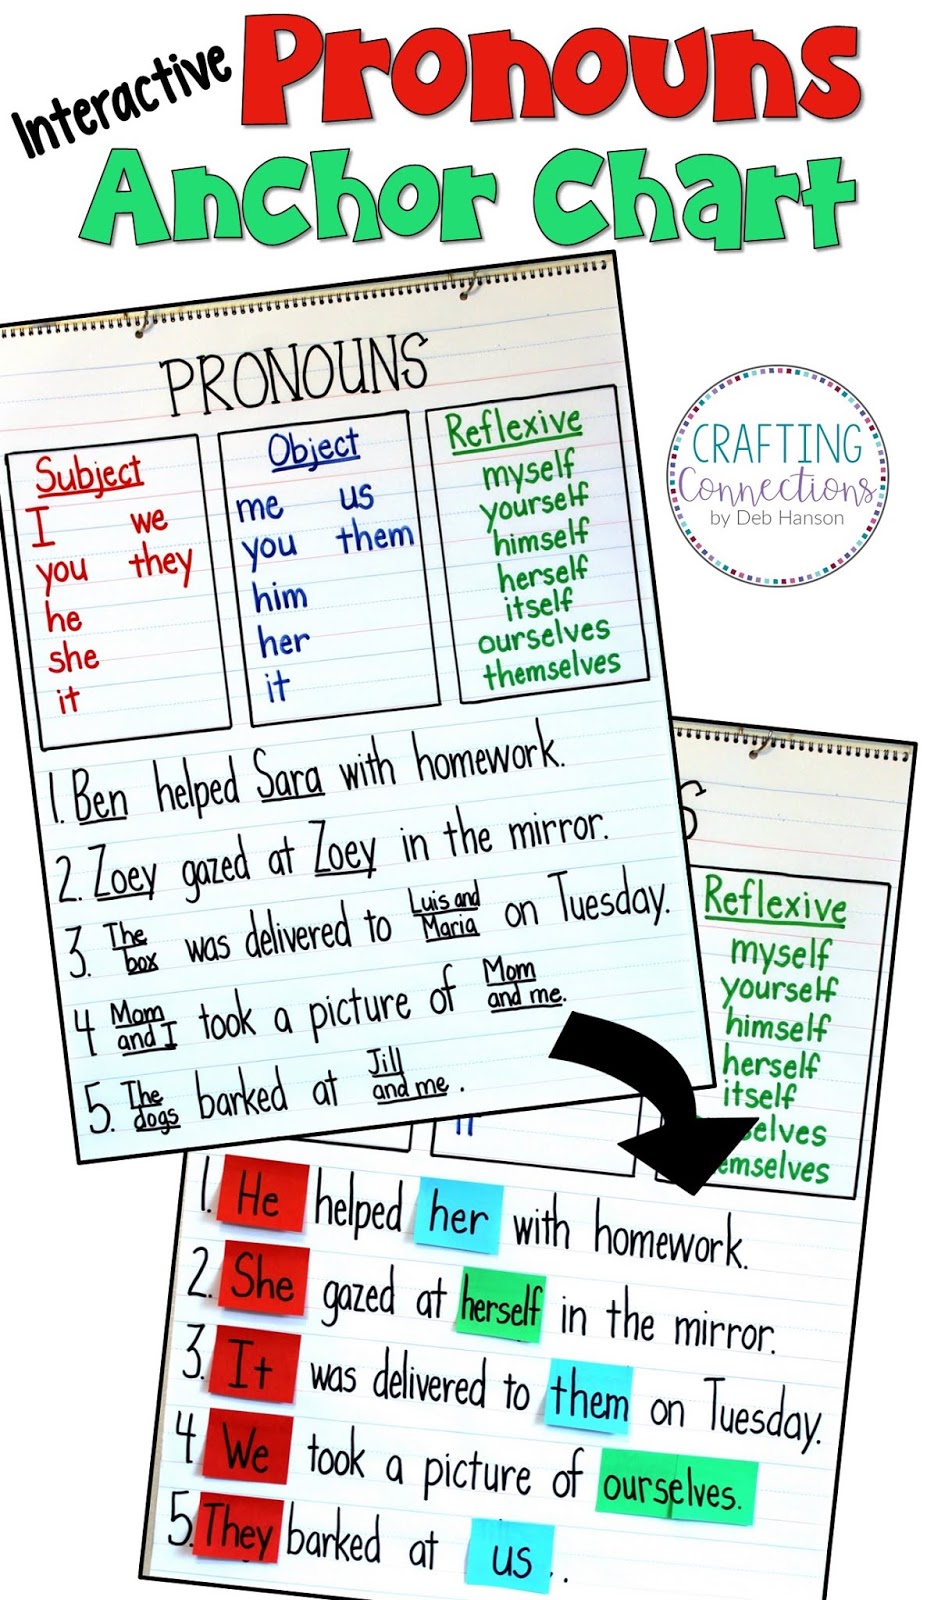 Interactive Pronouns
Anchor Chart
CRAFTING
Connections
by Deb Hanson
PRONOUNS
Subject
I we
you they
he
she
it
Object
me us
you them
him
her
it
Reflexive
myself
yourself
himself
herself
itself
ourselves
themselves
1. Ben helped Sara with homework.
2. Zoey gazed at Zoey in the mirror.
3. The box was delivered to Luis and Maria on Tuesday.
4 Mom and I took a picture of Mom and me.
5. The dogs barked at Jill and me.
S
Reflexive
myself
yourself
himself
herself
itself
selves
emselves
it
1. He helped her with homework.
2. She gazed at herself in the mirror.
3. It was delivered to them on Tuesday.
4 We took a picture of ourselves.
5. They barked at us..